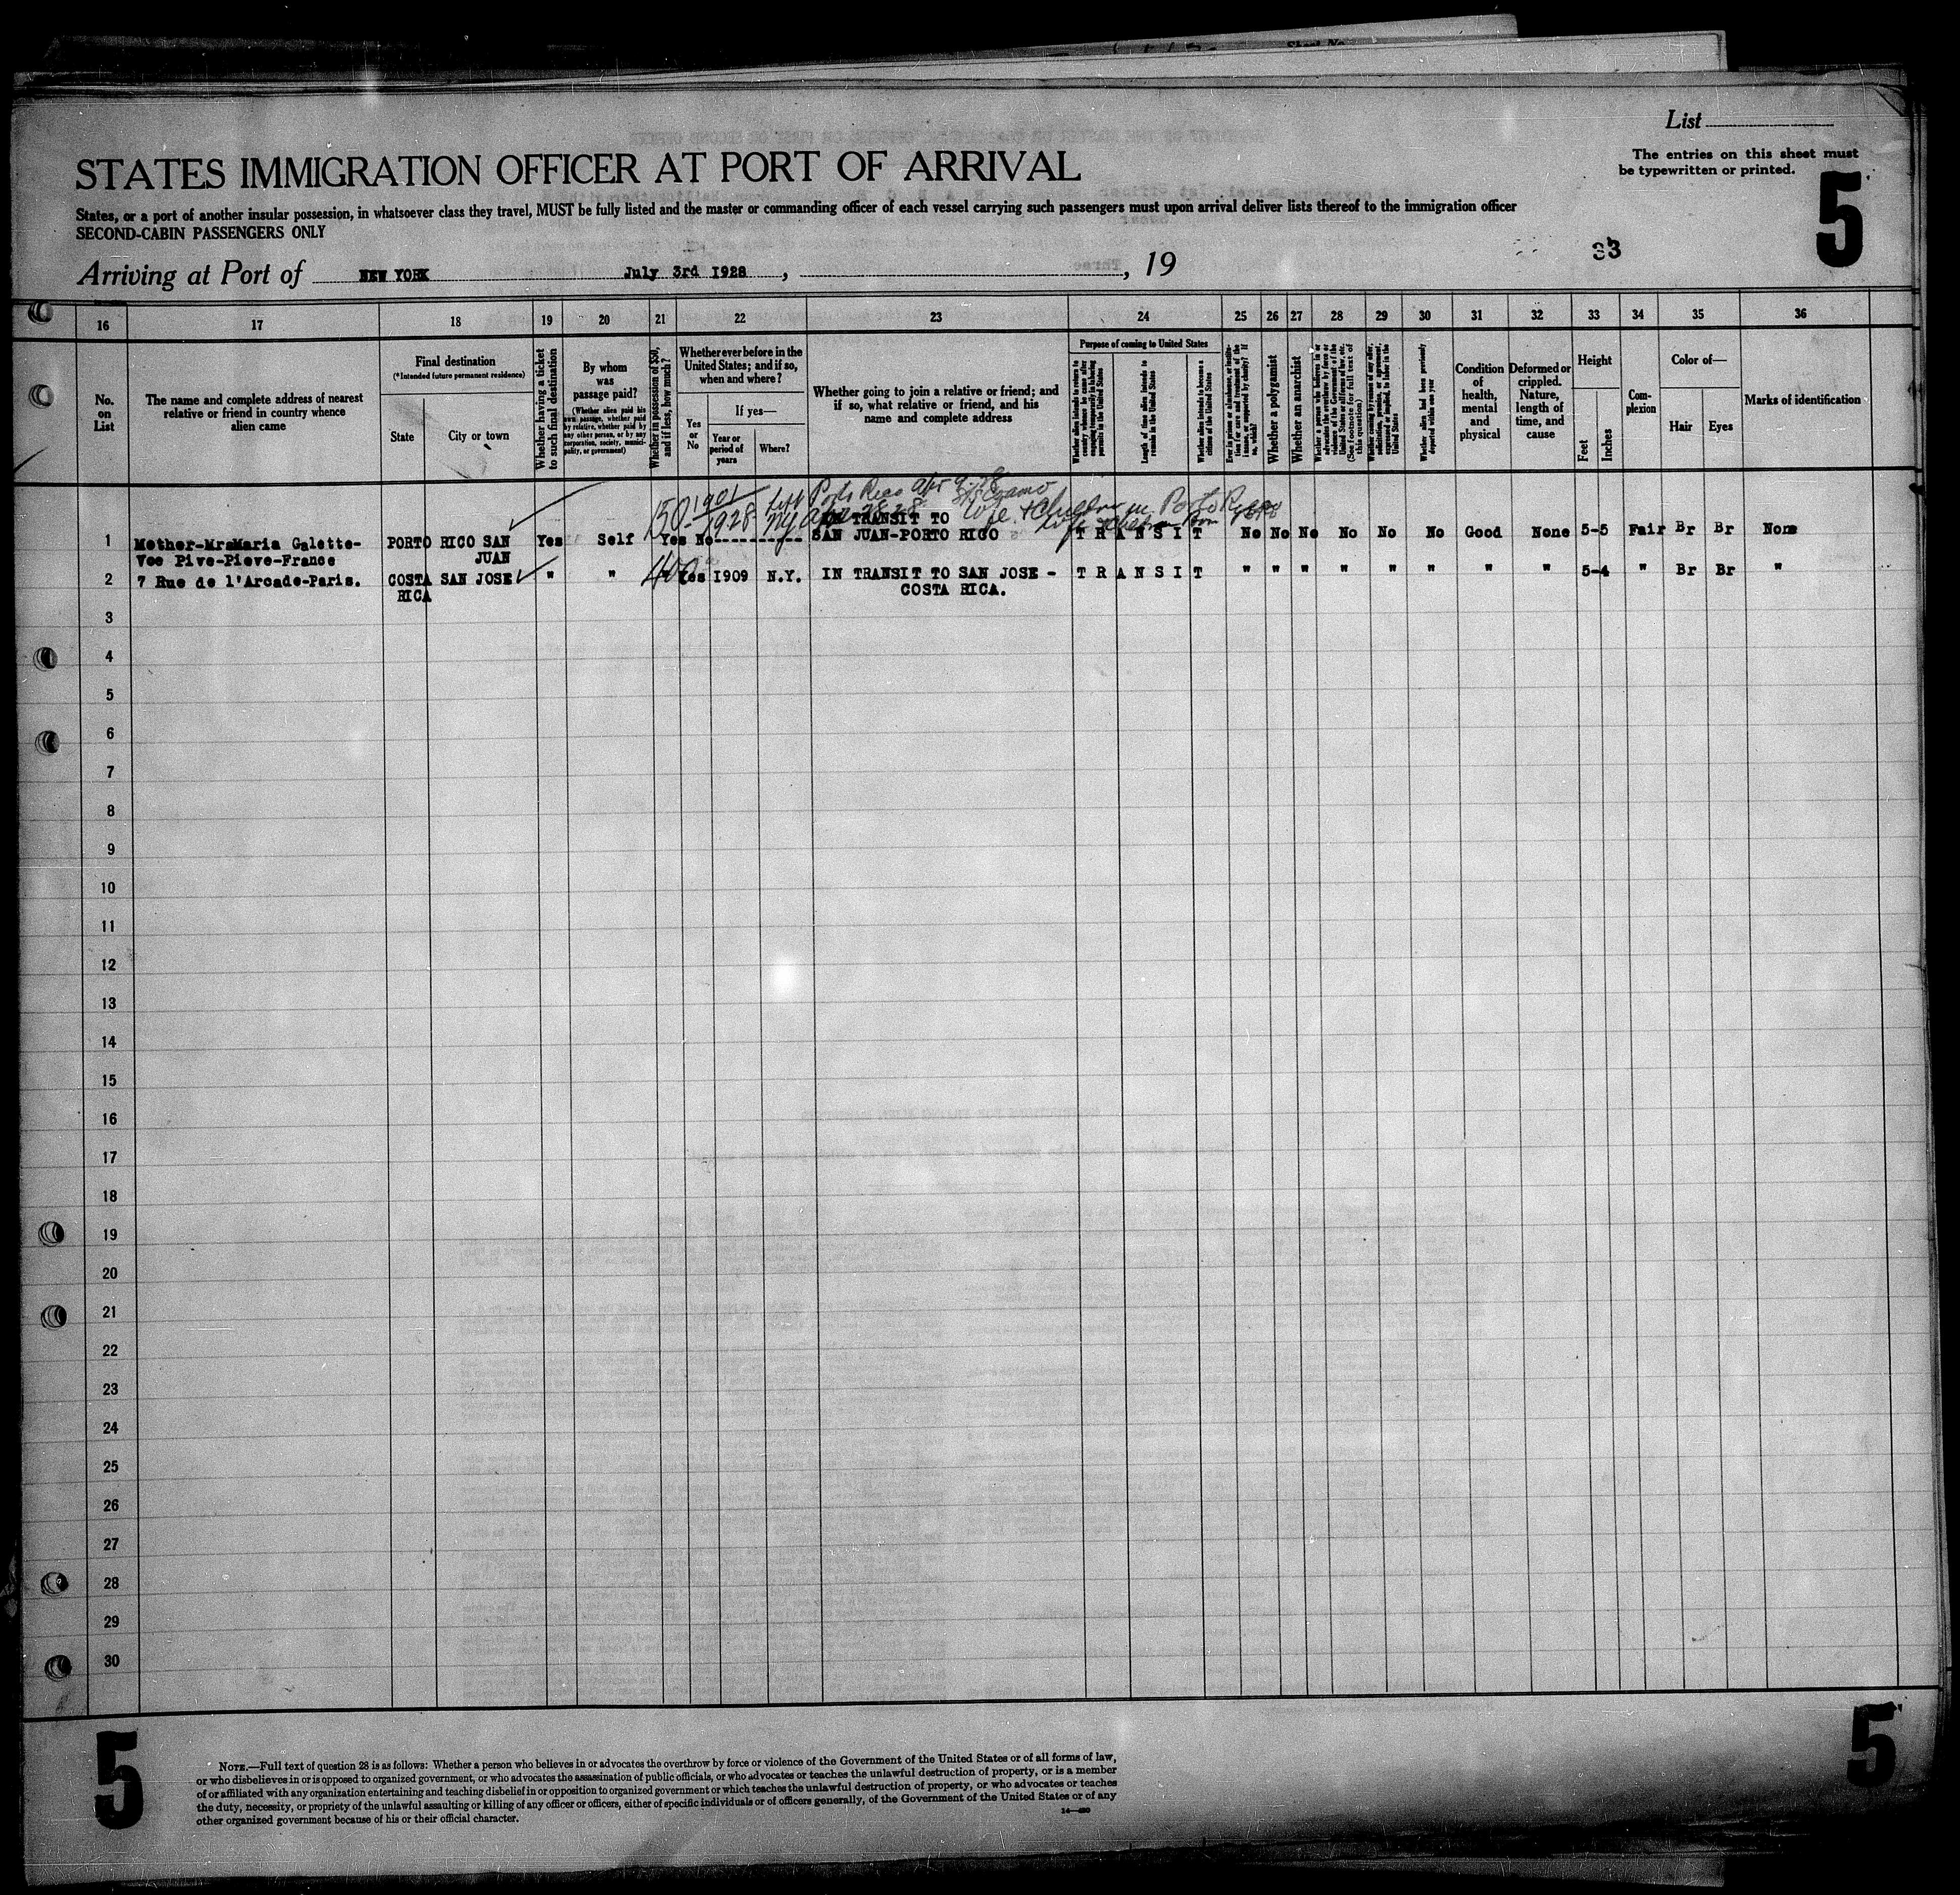 List
The entries on this sheet must
be typewritten or printed.
STATES IMMIGRATION OFFICER AT PORT OF ARRIVAL
5
States, or a port of another insular possession, in whatsoever class they travel, MUST be fully listed and the master or commanding officer of each vessel carrying such passengers must upon arrival deliver lists thereof to the immigration officer
SECOND-CABIN PASSENGERS ONLY
33
Arriving at Port of NEW YORK July 3rd 1928, , 19
16 17 18 19 20 21 22 23 24 25 26 27 28 29 30 31 32 33 34 35 36
No. on List
The name and complete address of nearest relative or friend in country whence alien came
Final destination
(*Intended future permanent residence)
State
City or town
Whether having a ticket to such final destination
By whom was passage paid?
(Whether alien paid his own passage, whether paid by relative, whether paid by any other person, or by any corporation, society, municipality, or government)
Whether in possession of $50, and if less, how much?
Whether ever before in the United States; and if so, when and where?
Yes or No
If yes—
Year or period of years
Where?
Whether going to join a relative or friend; and if so, what relative or friend, and his name and complete address
Purpose of coming to United States
Length of time alien intends to remain in the United States
Whether alien intends to become a citizen of the United States
Whether a polygamist
Whether an anarchist
Whether alien had been previously deported within one year
Condition of health, mental and physical
Deformed or crippled. Nature, length of time, and cause
Height
Feet
Inches
Complexion
Color of—
Hair
Eyes
Marks of identification
150 1901 left Porto Rico apr 9
1928 NY
IN TRANSIT TO
1 Mother-MrsMaria Galette- PORTO RICO SAN Yes Self Yes No---------- SAN JUAN-PORTO RICO TRANSIT No No No No No No Good None 5-5 Fair Br Br None
Vce Pive-Pieve-France JUAN
2 7 Rue de l'Arcade-Paris. COSTA SAN JOSE " " 400 Yes 1909 N.Y. IN TRANSIT TO SAN JOSE - TRANSIT " " " " " " " " 5-4 " Br Br "
RICA COSTA RICA.
3
4
5
6
7
8
9
10
11
12
13
14
15
16
17
18
19
20
21
22
23
24
25
26
27
28
29
30
5
5
NOTE.—Full text of question 28 is as follows: Whether a person who believes in or advocates the overthrow by force or violence of the Government of the United States or of all forms of law,
or who disbelieves in or is opposed to organized government, or who advocates the assassination of public officials, or who advocates or teaches the unlawful destruction of property, or is a member
of or affiliated with any organization entertaining and teaching disbelief in or opposition to organized government or which teaches the unlawful destruction of property, or who advocates or teaches
the duty, necessity, or propriety of the unlawful assaulting or killing of any officer or officers, either of specific individuals or of officers generally, of the Government of the United States or of any
other organized government because of his or their official character.